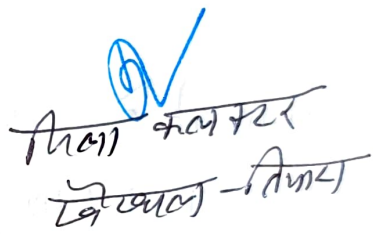 जिला कलक्टर
खैरथल-तिजारा